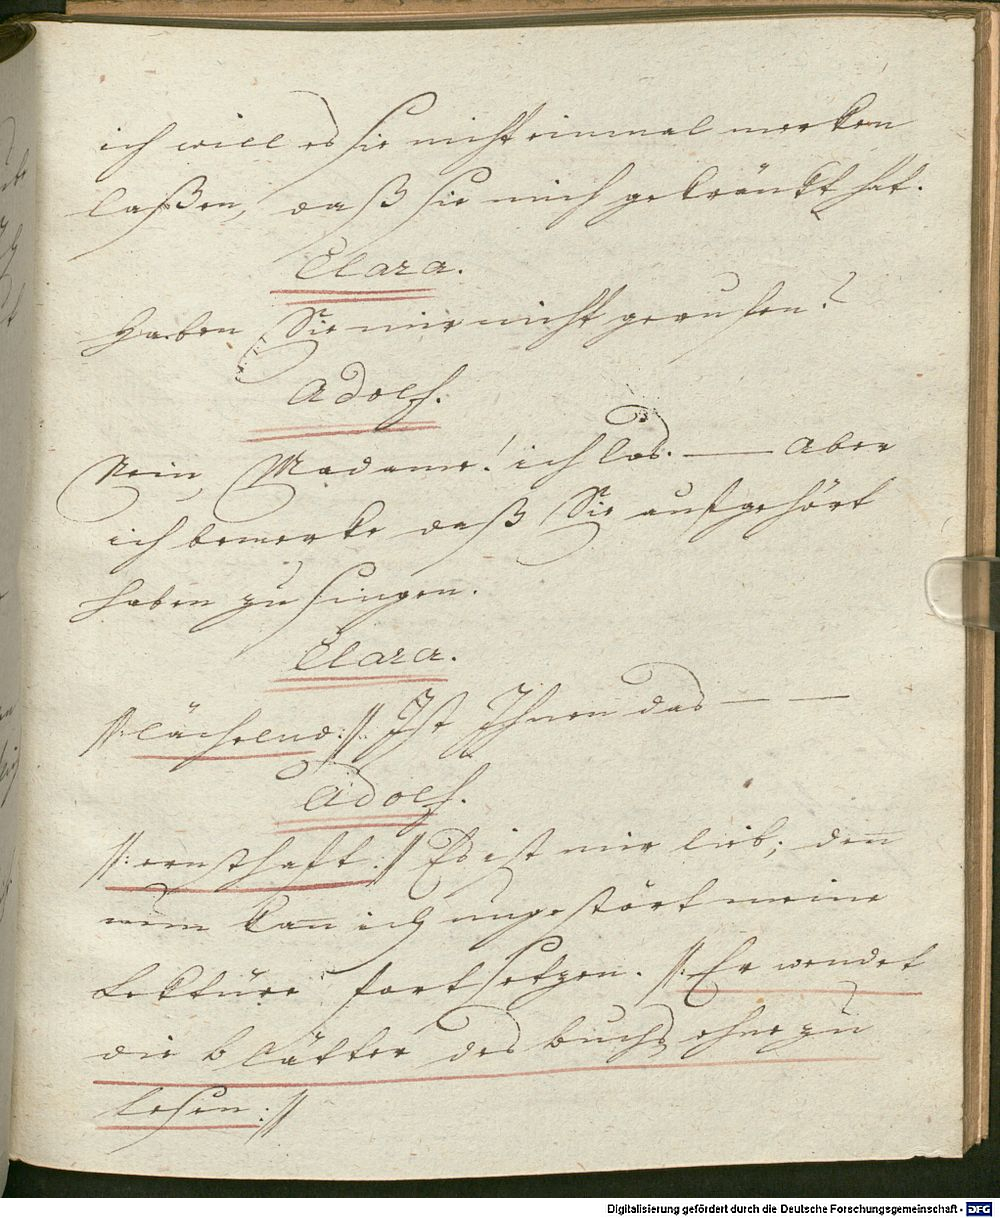 ich will es sie nicht einmal merken
laßen, daß sie mich gekränkt hat.
Clara.
Haben Sie mir nicht gerufen?
Adolf.
Nein, Madame! ich las. — Aber
ich bemerke daß Sie aufgehört
haben zu singen.
Clara.
//: lächelnd: // Ist Ihnen das — —
Adolf.
//: ernsthaft: // Es ist mir lieb; deñ
nun kañ ich ungestört meine
Lektüre fortsetzen. //: Er wendet
die blätter des buchs ohne zu
lesen: //
Digitalisierung gefördert durch die Deutsche Forschungsgemeinschaft - DFG